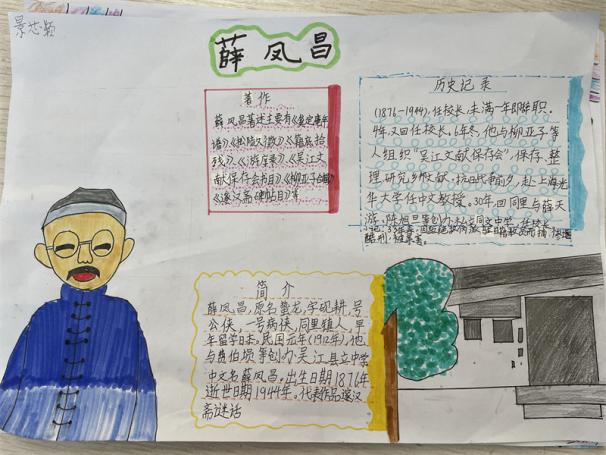 景芯颖
薛凤昌
著作
薛凤昌著述主要有《籄底庸年
语》《松陵文徵》《籍底拾
残》《游庠录》《吴江文
献保存会书目》《柳亚子
《邃汉斋谜话》等
历史记录
(1876-1944),任校长,未满一年即辞职。
4年,又回任校长。6年冬,他与柳亚子等
人组织“吴江文献保存会”,保存、整
理、研究乡邦文献。抗日战争前夕,赴上海光
华大学任中文教授。30年,回同里与薛天
游、陈旭旦等创办私立同文中学,任校长
酷刑,被害。
简介
薛凤昌,原名蛰龙,字砚耕,号
公侠,一号病侠,同里镇人,早
年留学日本。民国元年(1912年),他
与费伯埙等创办吴江县立中学
中文名薛凤昌,出生日期1876年
逝世日期1944年。代表作品邃汉
斋谜话